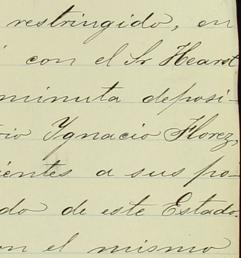 restringido, en
con el Sr Hearst
minuta deposi-
Ygnacio Florez,
ientes a sus po-
do de este Estado.
on el mismo